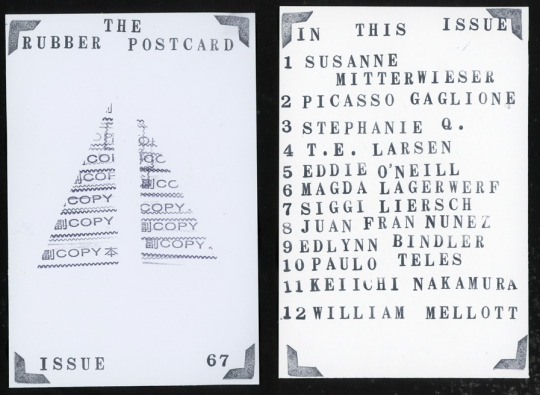 THE
RUBBER POSTCARD
COPY
COPY
COPY
副COPY
COPY.
副COPY
副COPY本
副COPY.
ISSUE 67
IN THIS ISSUE
1 SUSANNE
MITTERWIESER
2 PICASSO GAGLIONE
3 STEPHANIE Q.
4 T.E. LARSEN
5 EDDIE O'NEILL
6 MAGDA LAGERWERF
7 SIGGI LIERSCH
8 JUAN FRAN NUNEZ
9 EDLYNN BINDLER
10 PAULO TELES
11 KEIICHI NAKAMURA
12 WILLIAM MELLOTT